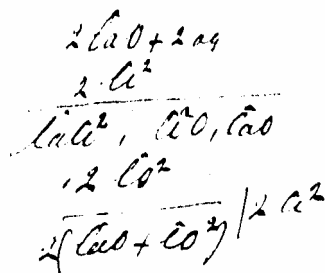 2 CaO + 2 aq
2 Cl²
CaCl², Cl²O, CaO
, 2 C̄O²
2(CaO + CO²) | 2 Cl²